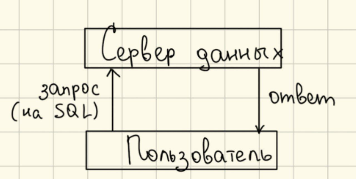 Сервер данных
запрос
(на SQL)
ответ
Пользователь